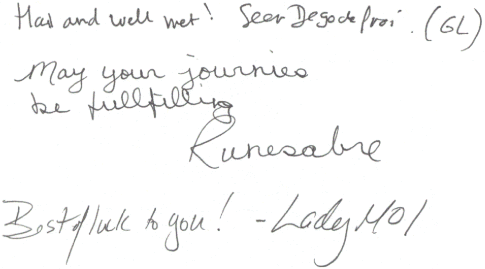 Hail and well met! Seer Degodefroi. (GL)
May your journies
be fullfilling
Runesabre
Best of luck to you! - Lady MOI